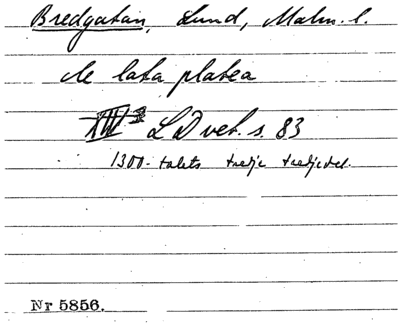 Bredgatan, Lund, Malm. l.
de lata platea
XIII 3 LDvet. s. 83
1300-talets tredje tredjedel.
Nr 5856.